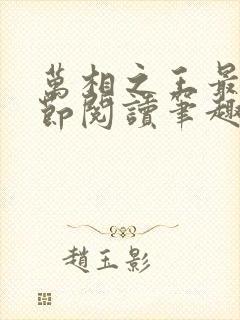 萬相之王最
節閱讀筆趣
趙玉影